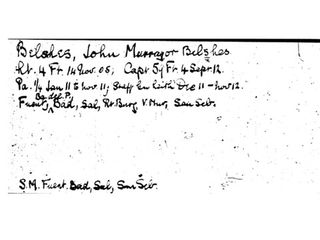 Belshes, John Murray or Belshes
Lt. 4 Ft. 14 Nov. 05; Capt 59 Ft. 4 Sept. 12.
Pa. 1/4 Jan 11 5 Nov. 11; Staff in Dec 11 - Nov 12.
Fuent, Bad, Sal, Rt. Burg, V. Mur, San Seb.
S.M. Fuent. Bad, Sal, San Seb.